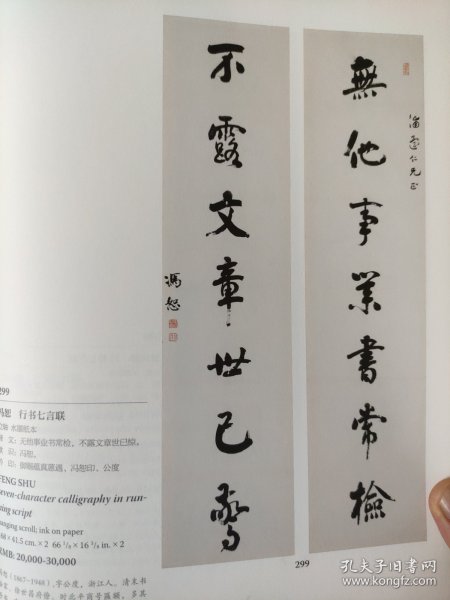 無他事業書常檢
仁兄正
不露文章世已驚
馮恕
299
冯恕 行书七言联
立轴 水墨纸本
文：无他事业书常检，不露文章世已惊。
识：冯恕。
印：御赐蕴真惬遇、冯恕印、公度
FENG SHU
even-character calligraphy in run-
ning script
anging scroll; ink on paper
68×41.5 cm.×2 66 1/8×16 3/8 in.×2
RMB: 20,000-30,000
恕（1867-1948），字公度，浙江人。清末书
徐世昌府僚，时北平商号匾额，多其
299
孔夫子旧书网